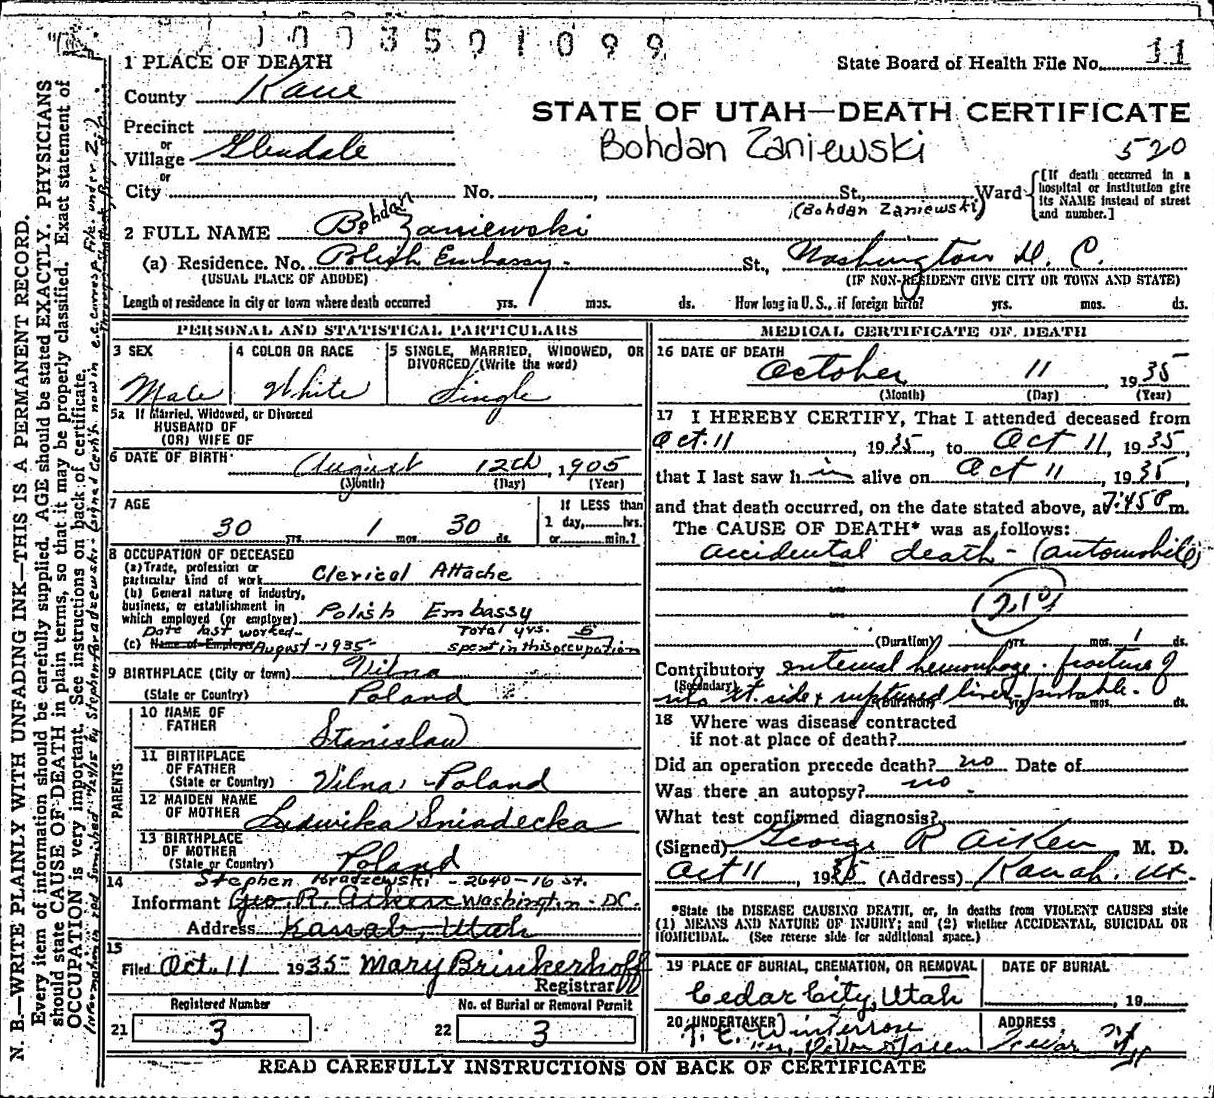 1003501099
1 PLACE OF DEATH
State Board of Health File No. 11
County Kane
STATE OF UTAH—DEATH CERTIFICATE
Precinct
or
Village Glendale
Bohdan Zaniewski
520
or
City No. , St., Ward
[If death occurred in a hospital or institution give its NAME instead of street and number.]
(Bohdan Zaniewski)
2 FULL NAME Bohdan Zaniewski
(a) Residence. No. Polish Embassy - St., Washington D. C.
(USUAL PLACE OF ABODE) (IF NON-RESIDENT GIVE CITY OR TOWN AND STATE)
Length of residence in city or town where death occurred yrs. mos. ds. How long in U. S., if foreign birth? yrs. mos. ds.
PERSONAL AND STATISTICAL PARTICULARS
3 SEX
Male
4 COLOR OR RACE
White
5 SINGLE, MARRIED, WIDOWED, OR DIVORCED (Write the word)
Single
5a If Married, Widowed, or Divorced
HUSBAND OF
(OR) WIFE OF
6 DATE OF BIRTH August 12th, 1905
(Month) (Day) (Year)
7 AGE
30 yrs. 1 mos. 30 ds.
If LESS than
1 day, hrs.
or min.?
8 OCCUPATION OF DECEASED
(a) Trade, profession or
particular kind of work Clerical Attache
(b) General nature of industry,
business, or establishment in
which employed (or employer) Polish Embassy
Date last worked- Total yrs. 5
(c) Name of Employer August - 1935 spent in this occupation
9 BIRTHPLACE (City or town) Vilna
(State or Country) Poland
PARENTS
10 NAME OF
FATHER Stanislaw
11 BIRTHPLACE
OF FATHER
(State or Country) Vilna, Poland
12 MAIDEN NAME
OF MOTHER Ludwika Sniadecka
13 BIRTHPLACE
OF MOTHER
(State or Country) Poland
14 Stephen - 2640-16 St.
Informant Geo. R. Aiken Washington - DC.
Address Kanab, Utah
15
Filed Oct. 11 1935 Mary Brinkerhoff
Registrar
Registered Number
21 3
No. of Burial or Removal Permit
22 3
MEDICAL CERTIFICATE OF DEATH
16 DATE OF DEATH
October 11, 1935
(Month) (Day) (Year)
17 I HEREBY CERTIFY, That I attended deceased from
Oct. 11, 1935, to Oct 11, 1935,
that I last saw him alive on Oct 11, 1935,
and that death occurred, on the date stated above, at 7:45 P m.
The CAUSE OF DEATH* was as follows:
accidental death - (automobile)
210
(Duration) yrs. mos. 1 ds.
Contributory internal hemorrhage - fracture of
(Secondary)
ribs rt. side & ruptured liver - probable.
(Duration) yrs. mos. ds.
18 Where was disease contracted
if not at place of death?
Did an operation precede death? no Date of
Was there an autopsy? no -
What test confirmed diagnosis?
(Signed) George R Aiken M. D.
Oct 11, 1935 (Address) Kanab, Ut.
*State the DISEASE CAUSING DEATH, or, in deaths from VIOLENT CAUSES state
(1) MEANS AND NATURE OF INJURY; and (2) whether ACCIDENTAL, SUICIDAL OR
HOMICIDAL. (See reverse side for additional space.)
19 PLACE OF BURIAL, CREMATION, OR REMOVAL
Cedar City, Utah
DATE OF BURIAL
, 19
20 UNDERTAKER
Winterrose
ADDRESS
Cedar
READ CAREFULLY INSTRUCTIONS ON BACK OF CERTIFICATE
N. B.—WRITE PLAINLY WITH UNFADING INK—THIS IS A PERMANENT RECORD.
Every item of information should be carefully supplied. AGE should be stated EXACTLY. PHYSICIANS
should state CAUSE OF DEATH in plain terms, so that it may be properly classified. Exact statement of
OCCUPATION is very important. See instructions on back of certificate.